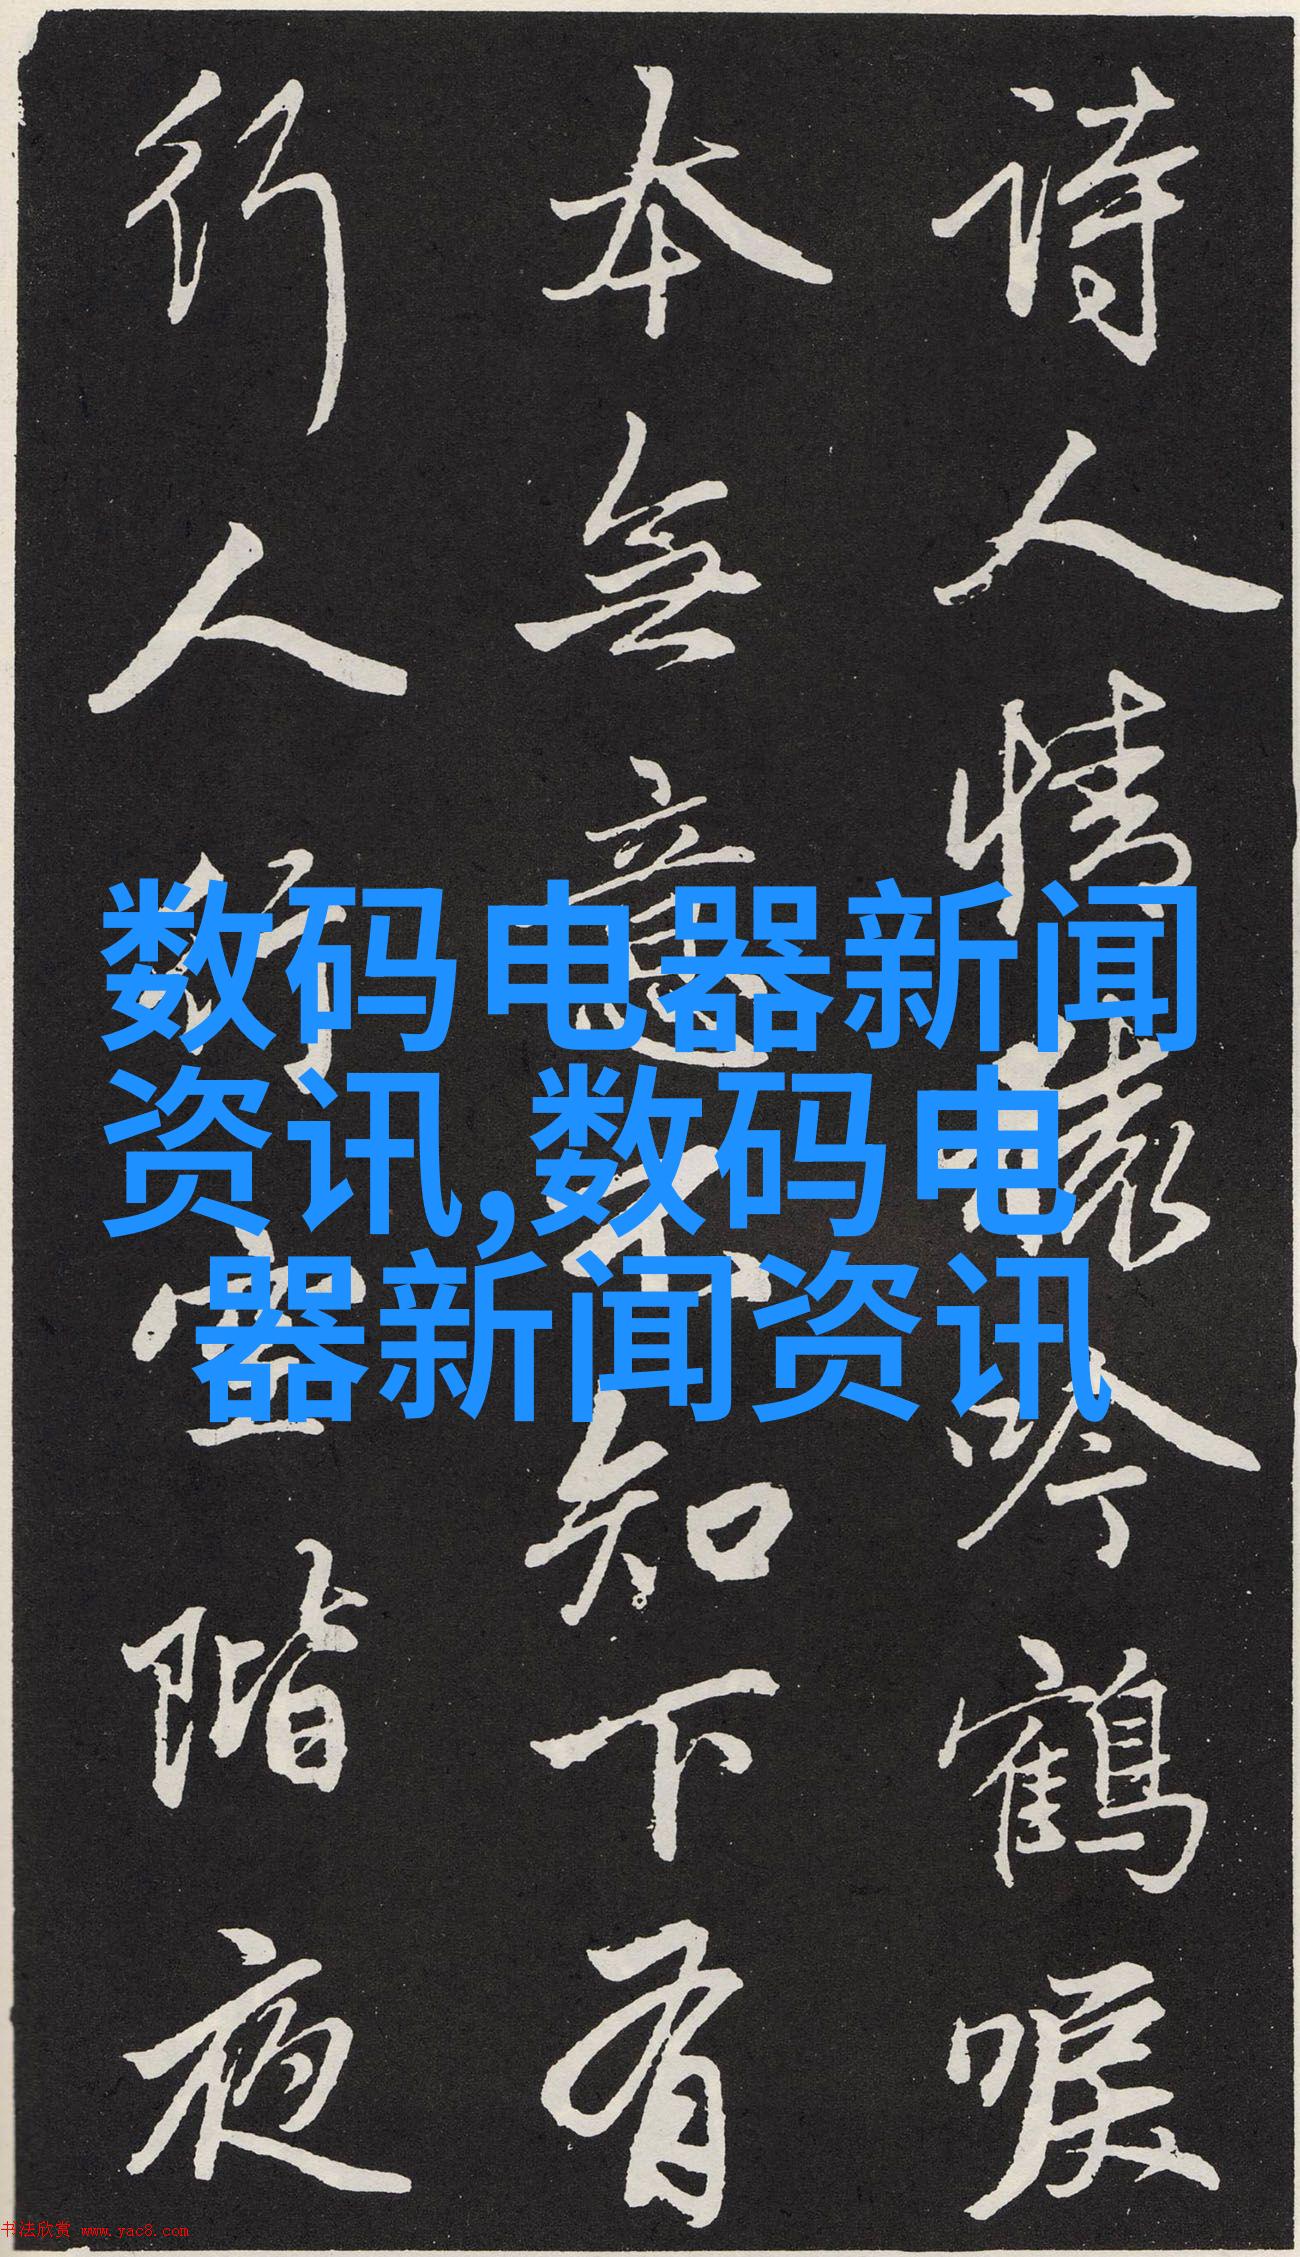 诗人情猿吟鹤唳
本无意不知下有
行人行空阶夜
数码电器新闻
资讯,数码电
器新闻资讯
书法欣赏 www.yac8.com